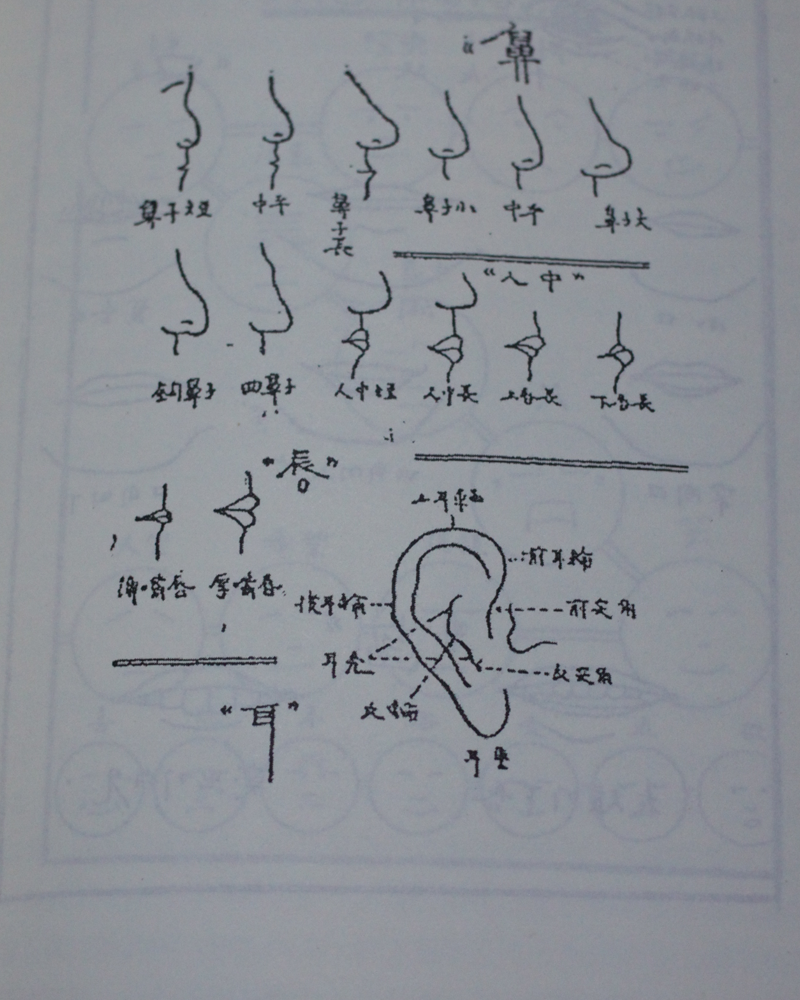 “鼻
鼻子短 中平 鼻子長 鼻子小 中平 鼻子大
“人中”
鈎鼻子 凹鼻子 人中短 人中長 上唇長 下唇長
“唇”
薄嘴唇 厚嘴唇
上耳輪
前耳輪
後耳輪 前尖角
耳壳 反尖角
反輪
耳垂
“耳”